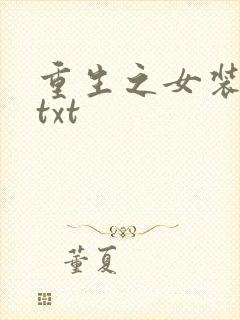 重生之女装
txt
董夏